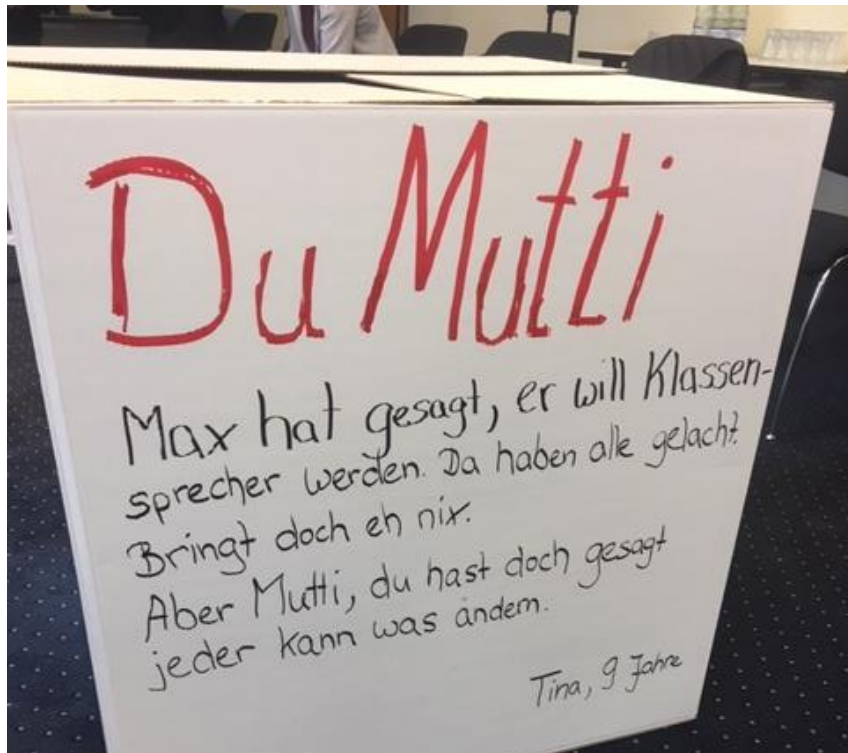 Du Mutti
Max hat gesagt, er will Klassen-
sprecher werden. Da haben alle gelacht.
Bringt doch eh nix.
Aber Mutti, du hast doch gesagt
jeder kann was ändern.
Tina, 9 Jahre